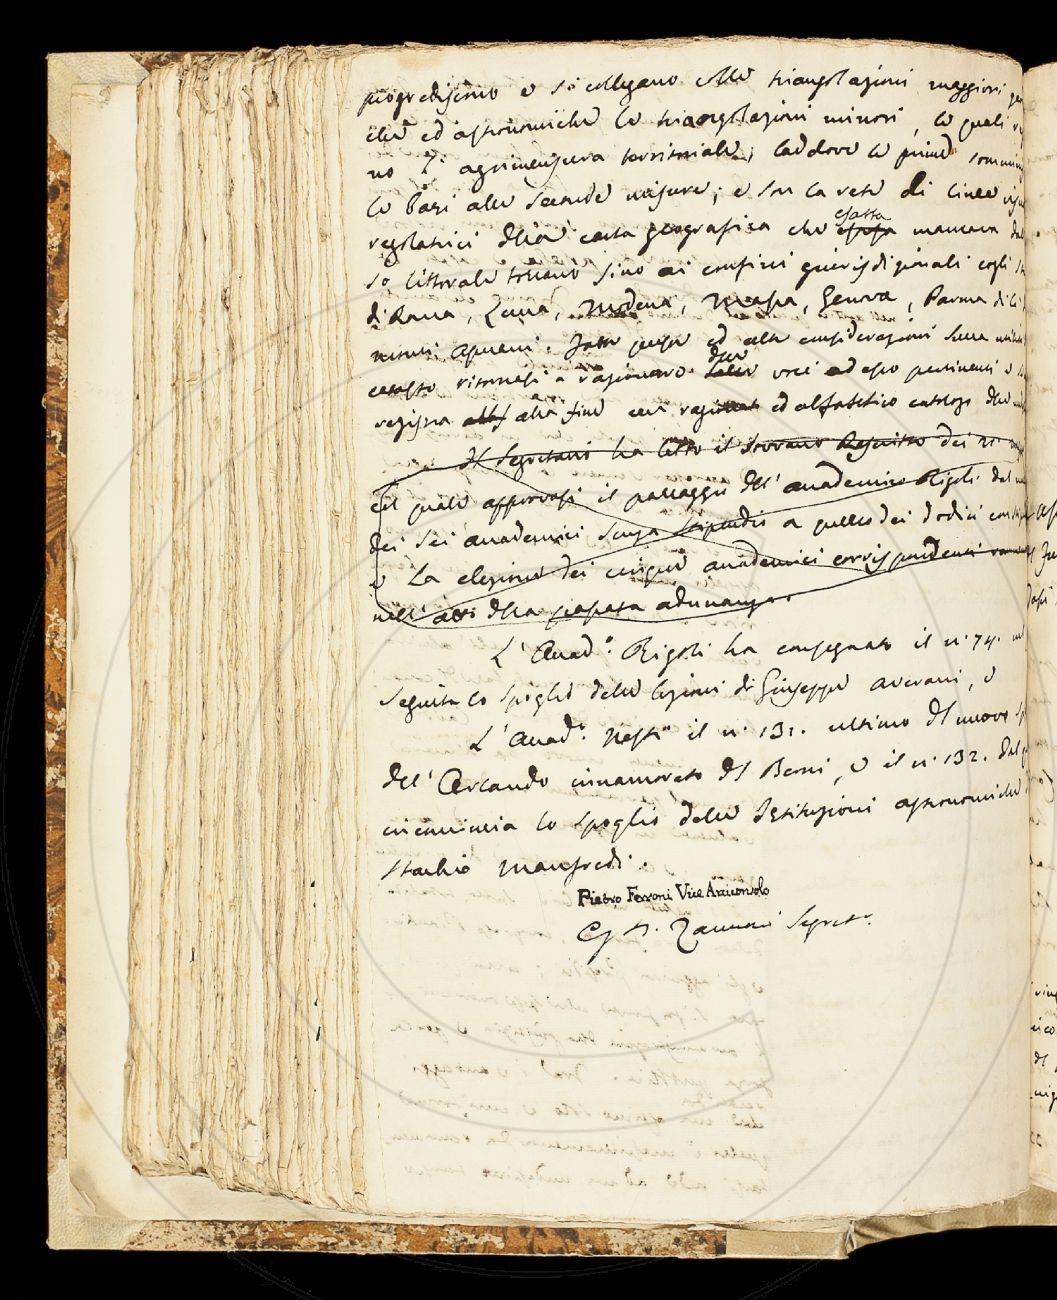 progrediscono e si collegano colle triangolazioni maggiori
che ed astronomiche le triangolazioni minori, le quali
no l'agrimensura territoriale; laddove le prime
le basi alle seconde misure; e son la rete di linee
regolatrici della carta geografica che esatta mancava
so littorale toscano sino ai confini giurisdizionali cogli
di Roma, Lucca, Modena, Massa, Genova, Parma
Apuani. Fatte queste ed altre considerazioni
catasto ritornasi a ragionare delle voci ad esso pertinenti e
registra alla fine ed alfabetico catalogo delle
Il Segretario ha letto il Sovrano Rescritto dei
col quale approvasi il passaggio dell'accademico Rigoli dal
dei sei accademici senza stipendio a quello dei dodici
e la elezione dei cinque accademici corrispondenti
nell'atti della passata adunanza.
L'Accad.º Rigoli ha consegnato il n.º 74.
seguita lo spoglio delle lezioni di Giuseppe Averani, e
L'Accad.º Nesti il n.º 131. ultimo del nuovo
dell'Orlando innamorato del Berni, e il n.º 132. dal
incomincia lo spoglio delle Istituzioni astronomiche
stachio Manfredi.
Pietro Ferroni Vice Arciconsolo
G. B. Zannoni Segret.º